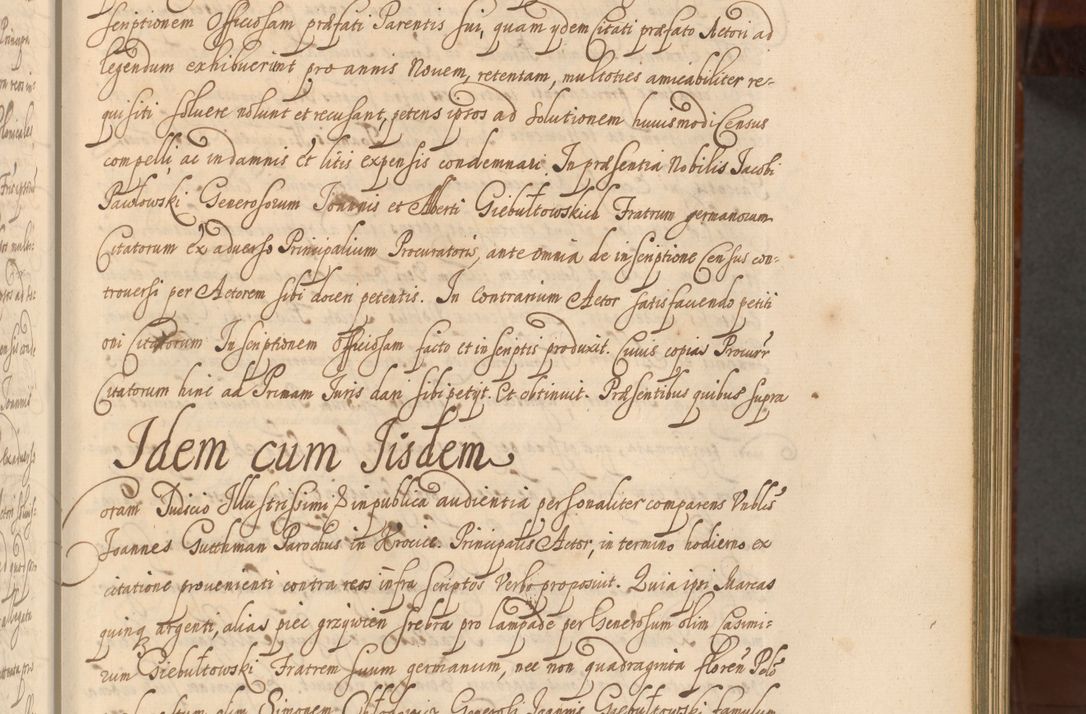 scriptionem Officiosam præfati Parentis sui, quam ydem Citati præfato Actori ad
legendum exhibuerunt pro annis Novem, retentam, multoties amicabiliter re-
quisiti solvere nolunt et recusant, petens ipsos ad Solutionem huiusmodi Census
compelli, ac in damnis et litis expensis condemnari. In præsentia Nobilis Jacobi
Pawłowski Generosorum Joannis et Alberti Giebułtowskich Fratrum germanorum
Citatorum ex adverso Principalium Procuratoris, ante omnia de inscriptione Census con-
troversi per Actorem sibi doceri petentis. In Contrarium Actor satisfaciendo petiti
oni Citatorum Inscriptionem Officiosam facto et in scriptis produxit. Cuius copias Procurr
Citatorum hinc ad Primam Juris dari sibi petyt. Et obtinuit. Præsentibus quibus supra
Idem cum Iisdem
Coram Judicio Illustrissimi & in publica audientia personaliter comparens Vnblis
Joannes Gutthman Parochus in Krocice Principalis Actor, in termino hodierno ex
citatione provenienti contra reos infra scriptos Verbo proposuit. Quia ipsi Marcas
quinq argenti, alias pięc grzywien srebra pro lampade per Generosum olim Casimi-
rum Giebułtowski Fratrem suum germanum, nec non quadraginta floren Polo
olim Simonem Generosi Joannis Giebułtowski famulum